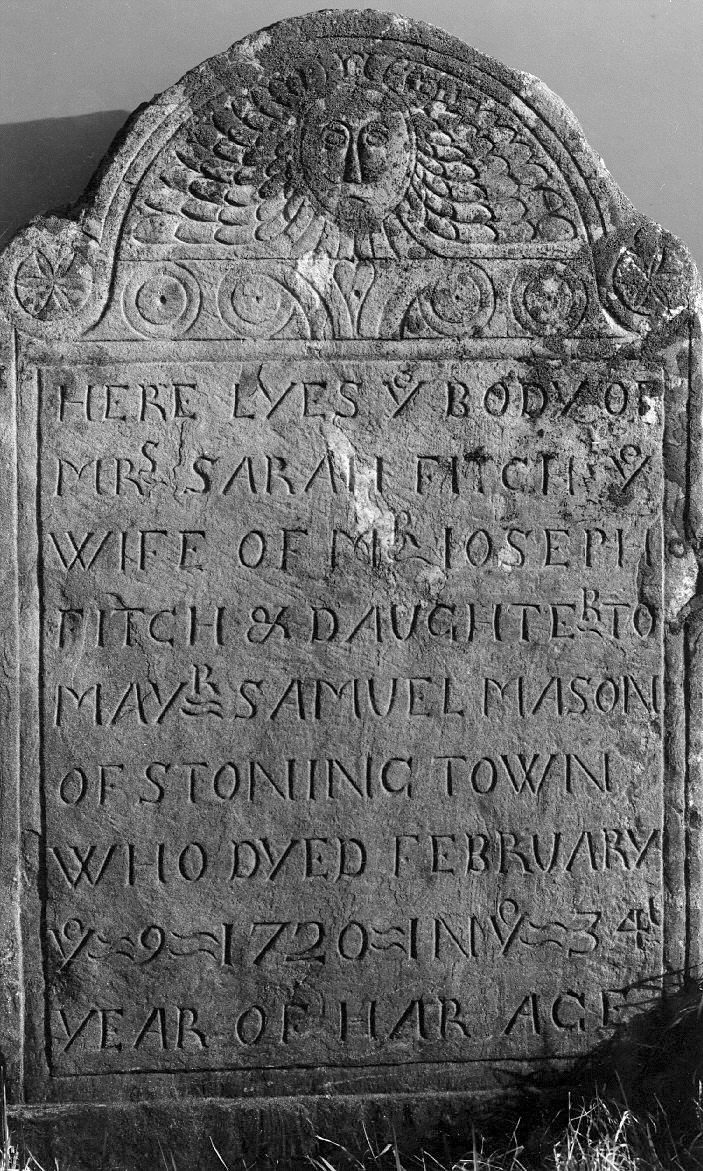 HERE LYES Yᵉ BODY OF
MRˢ SARAH FITCH Yᵉ
WIFE OF Mᴿ JOSEPH
FITCH & DAUGHTEᴿ TO
MAYᴿ SAMUEL MASON
OF STONING TOWN
WHO DYED FEBRUARY
Yᵉ ~ 9 ~ 1720 ~ IN Yᵉ ~ 34ᵗ
YEAR OF HAR AGE